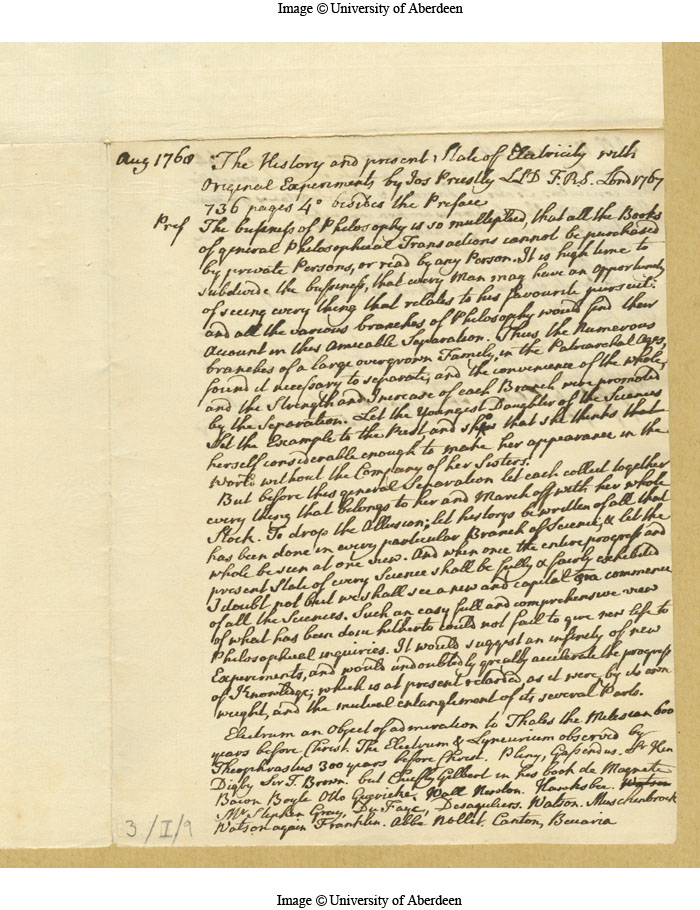 Image © University of Aberdeen
Aug 1768 The History and present State of Electricity with
Original Experiments by Jos Priestly LLD F.R.S. Lond 1767
736 pages 4° besides the Preface
Pref The business of Philosophy is so multiplied, that all the Books
of general Philosophical Transactions cannot be purchased
by private Persons, or read by any Person. It is high time to
subdivide the bussiness, that every Man may have an opportunity
of seeing every thing that relates to his favourite pursuit.
and all the various branches of Philosophy would find their
Account in this Amicable Separation. Thus the Numerous
branches of a large overgrown Family, in the Patriarchal Ages,
found it necessary to separate; and the convenience of the whole,
and the Strength and Increase of each Branch were promoted
by the Separation. Let the Youngest Daughter of the Sciences
Set the Example to the Rest and shew that she thinks that
herself considerable enough to make her appearance in the
World without the Company of her Sisters.
But before this general Separation let each collect together
every thing that belongs to her and March off with her whole
Stock. To drop the Allusion; let historys be written of all that
has been done in every particular Branch of Science, & let the
whole be seen at one view. And when once the entire progress and
present State of every Science shall be fully & fairly exhibited
I doubt not but we shall see a new and capital Æra commence
of all the Sciences. Such an easy full and comprehensive view
of what has been done hitherto could not fail to give new life to
Philosophical inquiries. It would suggest an infinity of new
Experiments, and would undoubtedly greatly accelerate the progress
of Knowledge; which is at present retarded, as it were, by its own
weight, and the mutual entanglement of its several Parts.
Electrum an Object of admiration to Thales the Milesian 600
years before Christ. The Electrum & Lyncurium observed by
Theophrastus 300 years before Christ. Pliny, Gassendus. Sr Ken
Digby Sir T. Brown. but Chiefly Gilbert in his book de Magnete
Bacon Boyle Otto Guericke. Wall Newton. Hawksbee. Watson
Mr Stephen Gray, Du Faye, Desaguliers. Watson. Muschenbroek
Watson again Franklin. Abbe Nollet. Canton, Beccaria
3/I/9
Image © University of Aberdeen